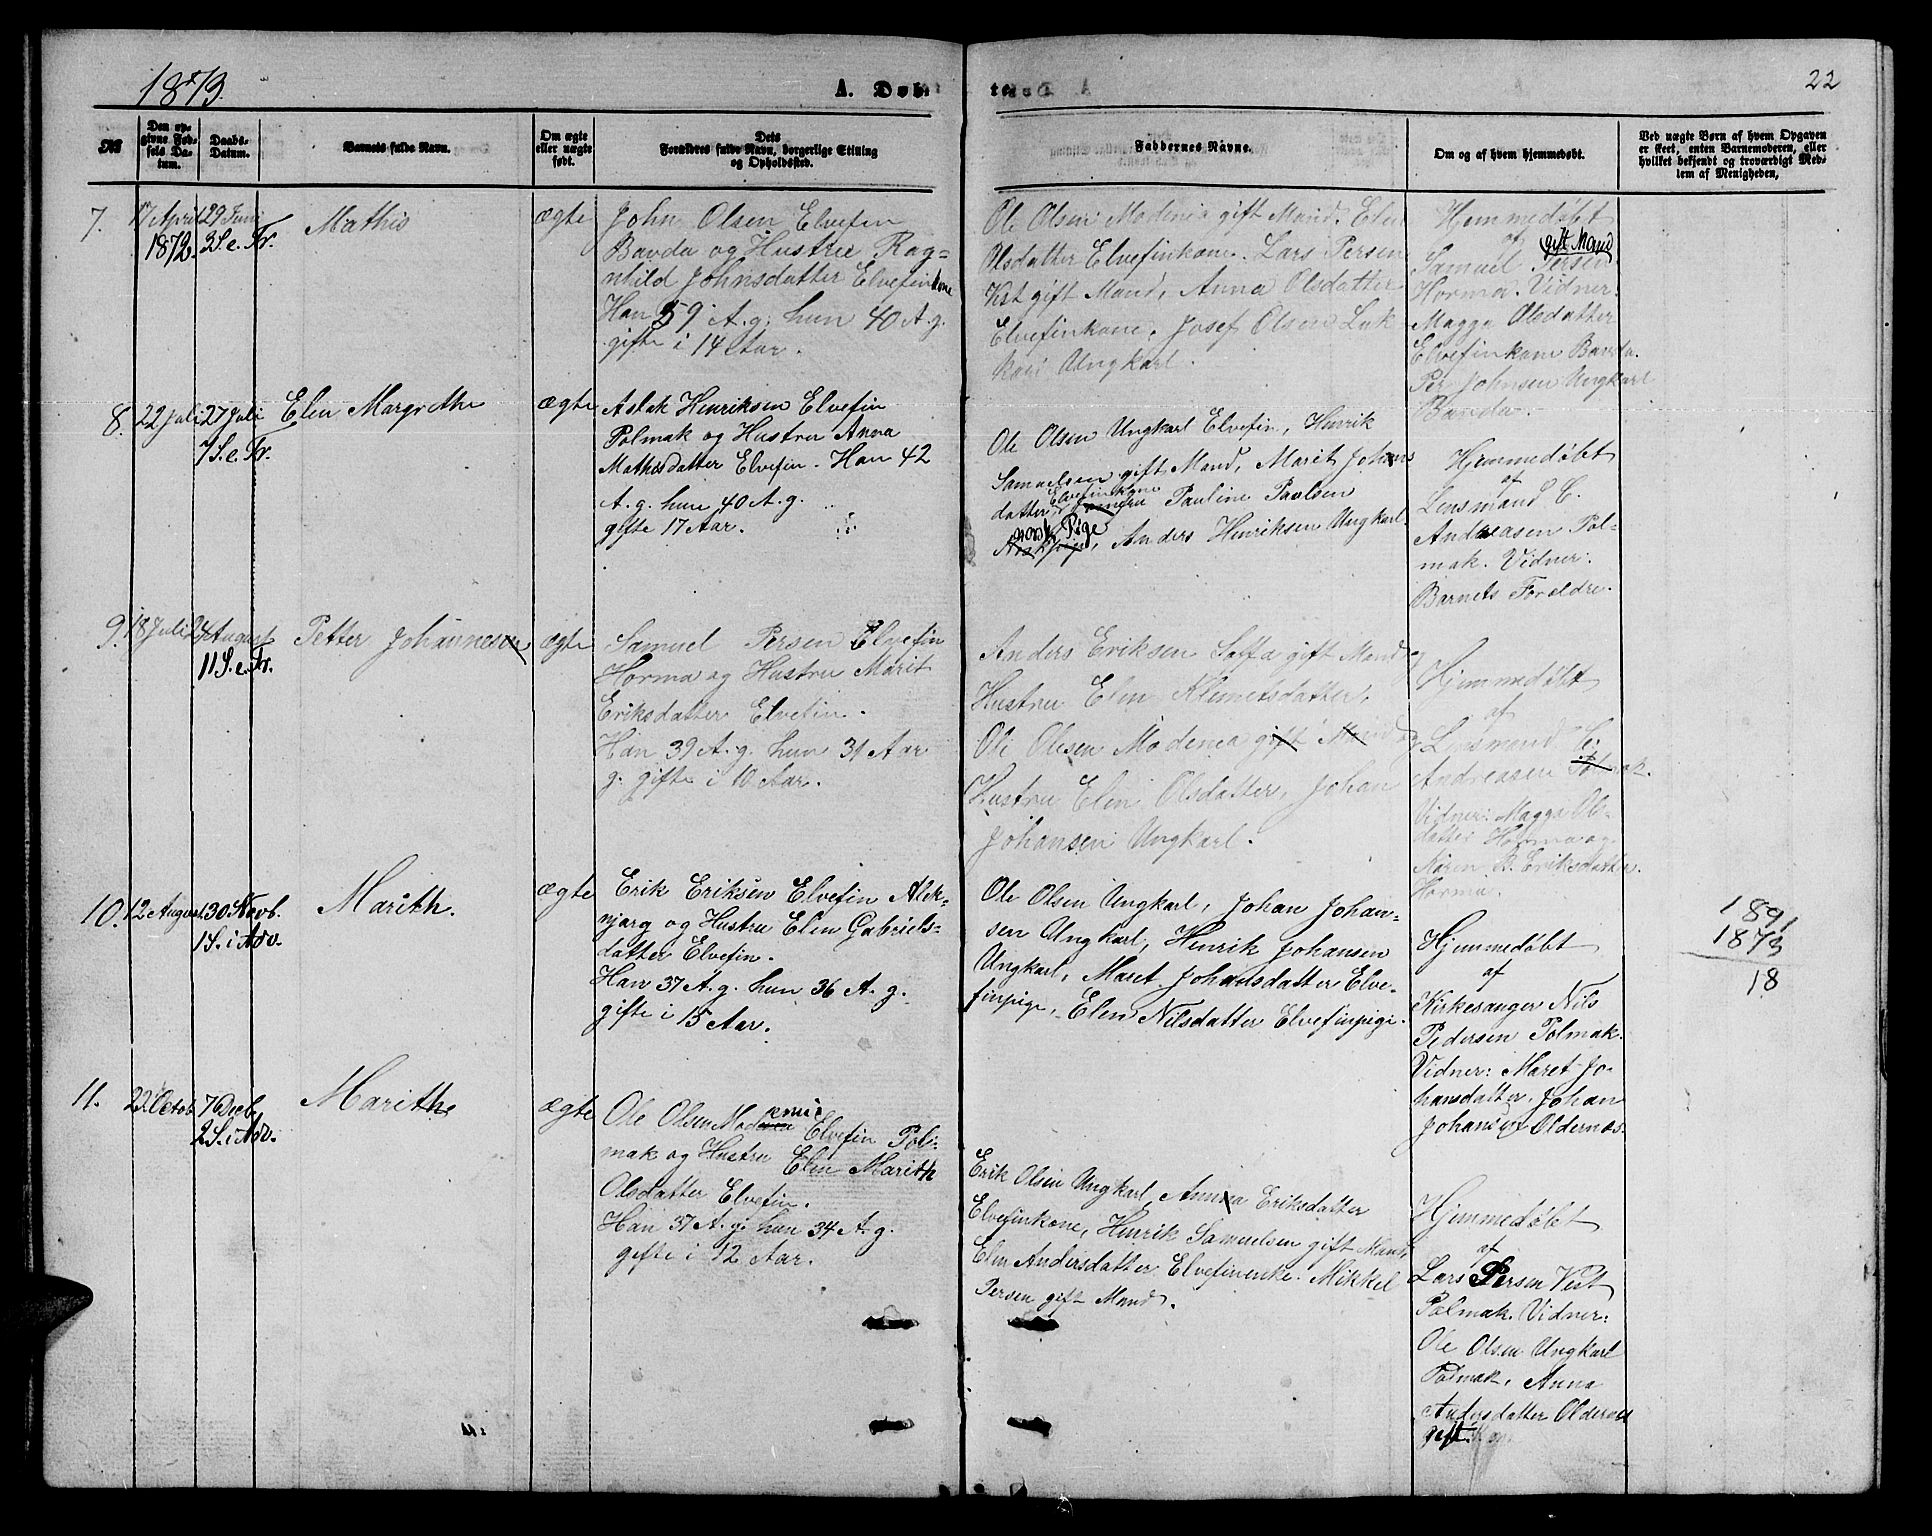 1873.
A. Døbte
22
№
Den opgivne Fødsels Datum.
Daabs-Datum.
Barnets fulde Navn.
Om ægte eller uægte født.
Dets Forældres fulde Navn, borgerlige Stilling og Opholdssted.
Faddernes Navne.
Om og af hvem hjemmedøbt.
Ved uægte Børn af hvem Opgaven er skeet, enten Barnemoderen, eller hvilket bekjendt og troværdigt Medlem af Menigheden,
7.
17 April
1872.
29 Juni
3 S. e. Tr.
Mathis
ægte
John Olsen Elvefin
Bavda og Hustru Rag=
nhild Johnsdatter Elvefinkone
Han 59 A. g. hun 40 A. g.
gifte i 14 Aar.
Ole Olsen Modenia gift Mand. Elen
Olsdatter Elvefinkone. Lars Persen
Vest gift Mand, Anna Olsdatter
Elvefinkone, Josef Olsen Luk
kari Ungkarl.
Hjemmedøbt
af gift Mand
Samuel Persen
Horma. Vidner:
Magga Olsdatter
Elvefinkone Bavda.
Per Johnsen Ungkarl
Bavda.
8.
22 Juli
27 Juli
7 S. e. Tr.
Elen Margrethe
ægte
Aslak Henriksen Elvefin
Polmak og Hustru Anna
Mathisdatter Elvefin. Han 42
A. g. hun 40 A. g.
gifte 17 Aar.
Ole Olsen Ungkarl Elvefin, Henrik
Samuelsen gift Mand, Marit Johans
datter Elvefinkone Pauline Paulsen
norsk Pige, Anders Henriksen Ungkarl.
Hjemmedøbt
af
Lensmand C.
Andreasen Pol-
mak. Vidner:
Barnets Forældre.
9.
18 Juli
24 August
11 S. e. Tr.
Petter Johannesen
ægte
Samuel Persen Elvefin
Horma og Hustru Marit
Eriksdatter Elvefin.
Han 39 A. g. hun 31 Aar
g. gifte i 10 Aar.
Anders Eriksen Soffa gift Mand og
Hustru Elen Klemetsdatter,
Ole Olesen Modenia gift Mand og
Hustru Elen Olsdatter, Johan
Johansen Ungkarl.
Hjemmedøbt
af
Lensmand C.
Andreasen Polmak.
Vidner: Magga Ols-
datter Horma og
Karen B. Eriksdatter
Horma.
10.
12 August
30 Novb.
1 S. i Adv.
Marith.
ægte
Erik Eriksen Elvefin Alek-
njarg og Hustru Elen Gabriels=
datter Elvefin.
Han 37 A. g. hun 36 A. g.
gifte i 15 Aar.
Ole Olsen Ungkarl, Johan Johan=
sen Ungkarl, Henrik Johansen
Ungkarl, Maret Johansdatter Elve-
finpige, Elen Nilsdatter Elvefinpige.
Hjemmedøbt
af
Kirkesanger Nils
Pedersen Polmak.
Vidner: Maret Jo-
hansdatter, Johan
Johansen Oldernæs.
1891
1873
18
11.
22 Octob.
7 Decb.
2 S. i Adv.
Marith
ægte
Ole Olsen Modenia Elvefin Pol-
mak og Hustru Elen Marith
Olsdatter Elvefin.
Han 37 A. g. hun 34 A. g.
gifte i 12 Aar.
Erik Olsen Ungkarl, Anna Eriksdatter
Elvefinkone, Henrik Samuelsen gift Mand,
Elen Andersdatter Elvefinenke. Mikkel
Persen gift Mand.
Hjemmedøbt
af
Lars Persen Vest
Polmak. Vidner:
Ole Olsen Ungkarl
Polmak, Anna
Andersdatter Oldernæs
gift.